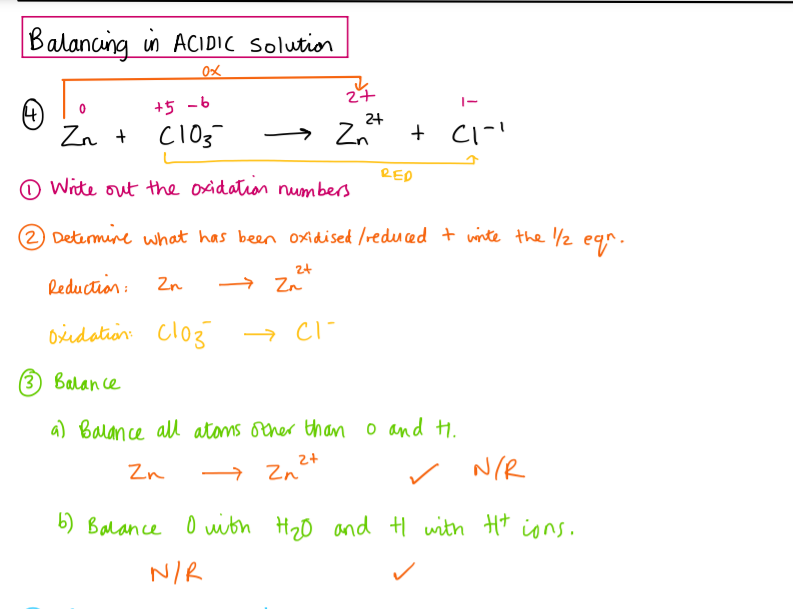 Balancing in ACIDIC solution
OX
0 +5 -6 2+ 1-
④ Zn + ClO₃⁻ → Zn²⁺ + Cl⁻¹
RED
① Write out the oxidation numbers
② Determine what has been oxidised/reduced + write the 1/2 eqn.
Reduction: Zn → Zn²⁺
Oxidation: ClO₃⁻ → Cl⁻
③ Balance
a) Balance all atoms other than O and H.
Zn → Zn²⁺ ✓ N/R
b) Balance O with H₂O and H with H⁺ ions.
N/R ✓